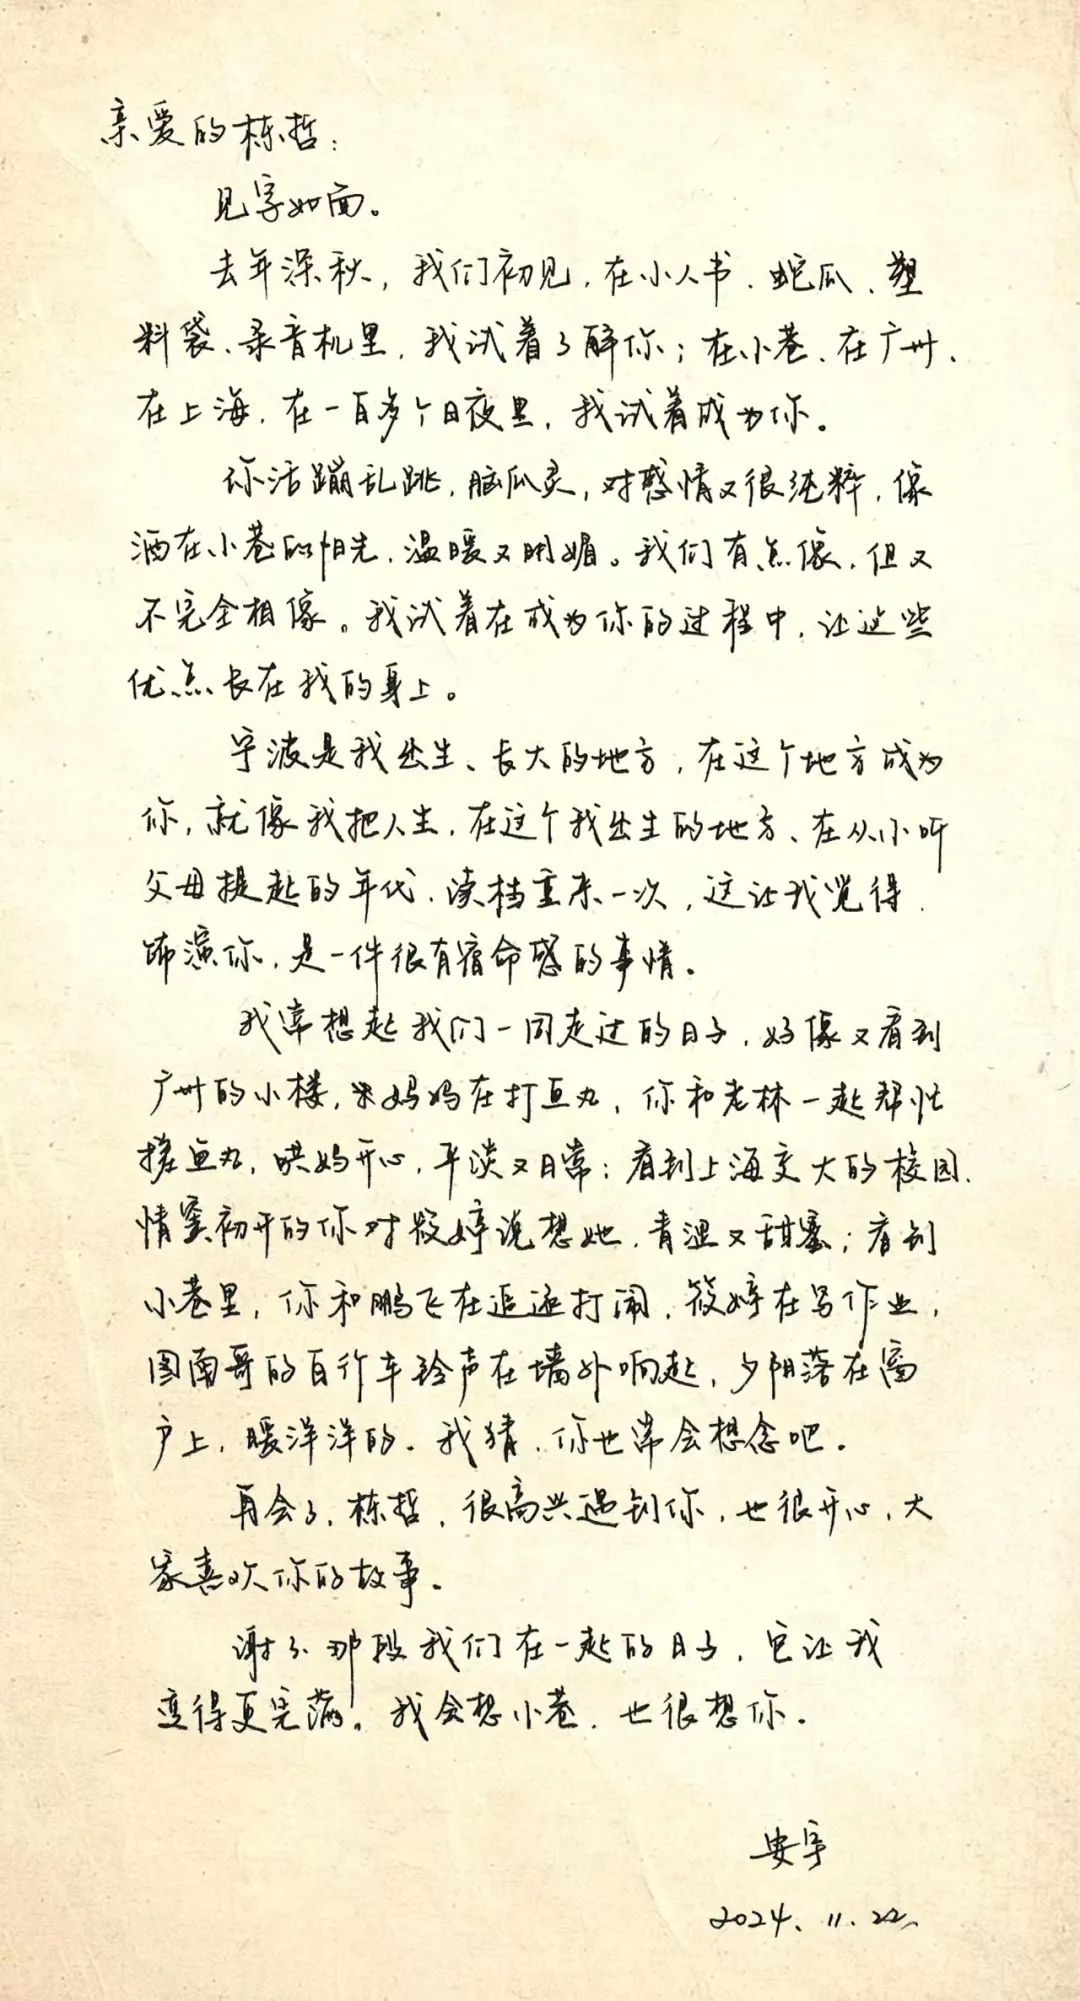 亲爱的栋哲：
见字如面。
去年深秋，我们初见，在小人书、蛇瓜、塑
料袋、录音机里，我试着了解你；在小巷、在广州、
在上海，在一百多个日夜里，我试着成为你。
你活蹦乱跳，脑瓜灵，对感情又很纯粹，像
洒在小巷的阳光，温暖又明媚。我们有点像，但又
不完全相像。我试着在成为你的过程中，让这些
优点长在我的身上。
宁波是我出生、长大的地方，在这个地方成为
你，就像我把人生，在这个我出生的地方、在从小听
父母提起的年代，读档重来一次，这让我觉得，
饰演你，是一件很有宿命感的事情。
我常想起我们一同走过的日子，好像又看到
广州的小楼，宋妈妈在打鱼丸，你和老林一起帮忙
搓鱼丸，哄妈开心，平淡又日常；看到上海交大的校园，
情窦初开的你对筱婷说想她，青涩又甜蜜；看到
小巷里，你和鹏飞在追逐打闹，筱婷在写作业，
图南哥的自行车铃声在墙外响起，夕阳落在窗
户上，暖洋洋的。我猜，你也常会想念吧。
再会了，栋哲，很高兴遇到你，也很开心，大
家喜欢你的故事。
谢了，那段我们在一起的日子，它让我
变得更完满。我会想小巷，也很想你。
安宇
2024.11.22